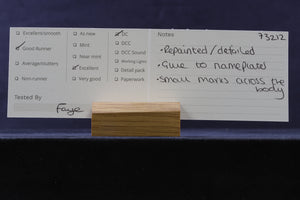 Excellent/smooth
Good Runner
Average/stutters
Non-runner
Tested By
Faye
As new
Mint
Near mint
Excellent
Very good
DC
DCC
DCC Sound
Working Lights
Detail pack
Paperwork
Notes
73212
• Repainted/detailed
• Glue to nameplates
• Small marks across the
body